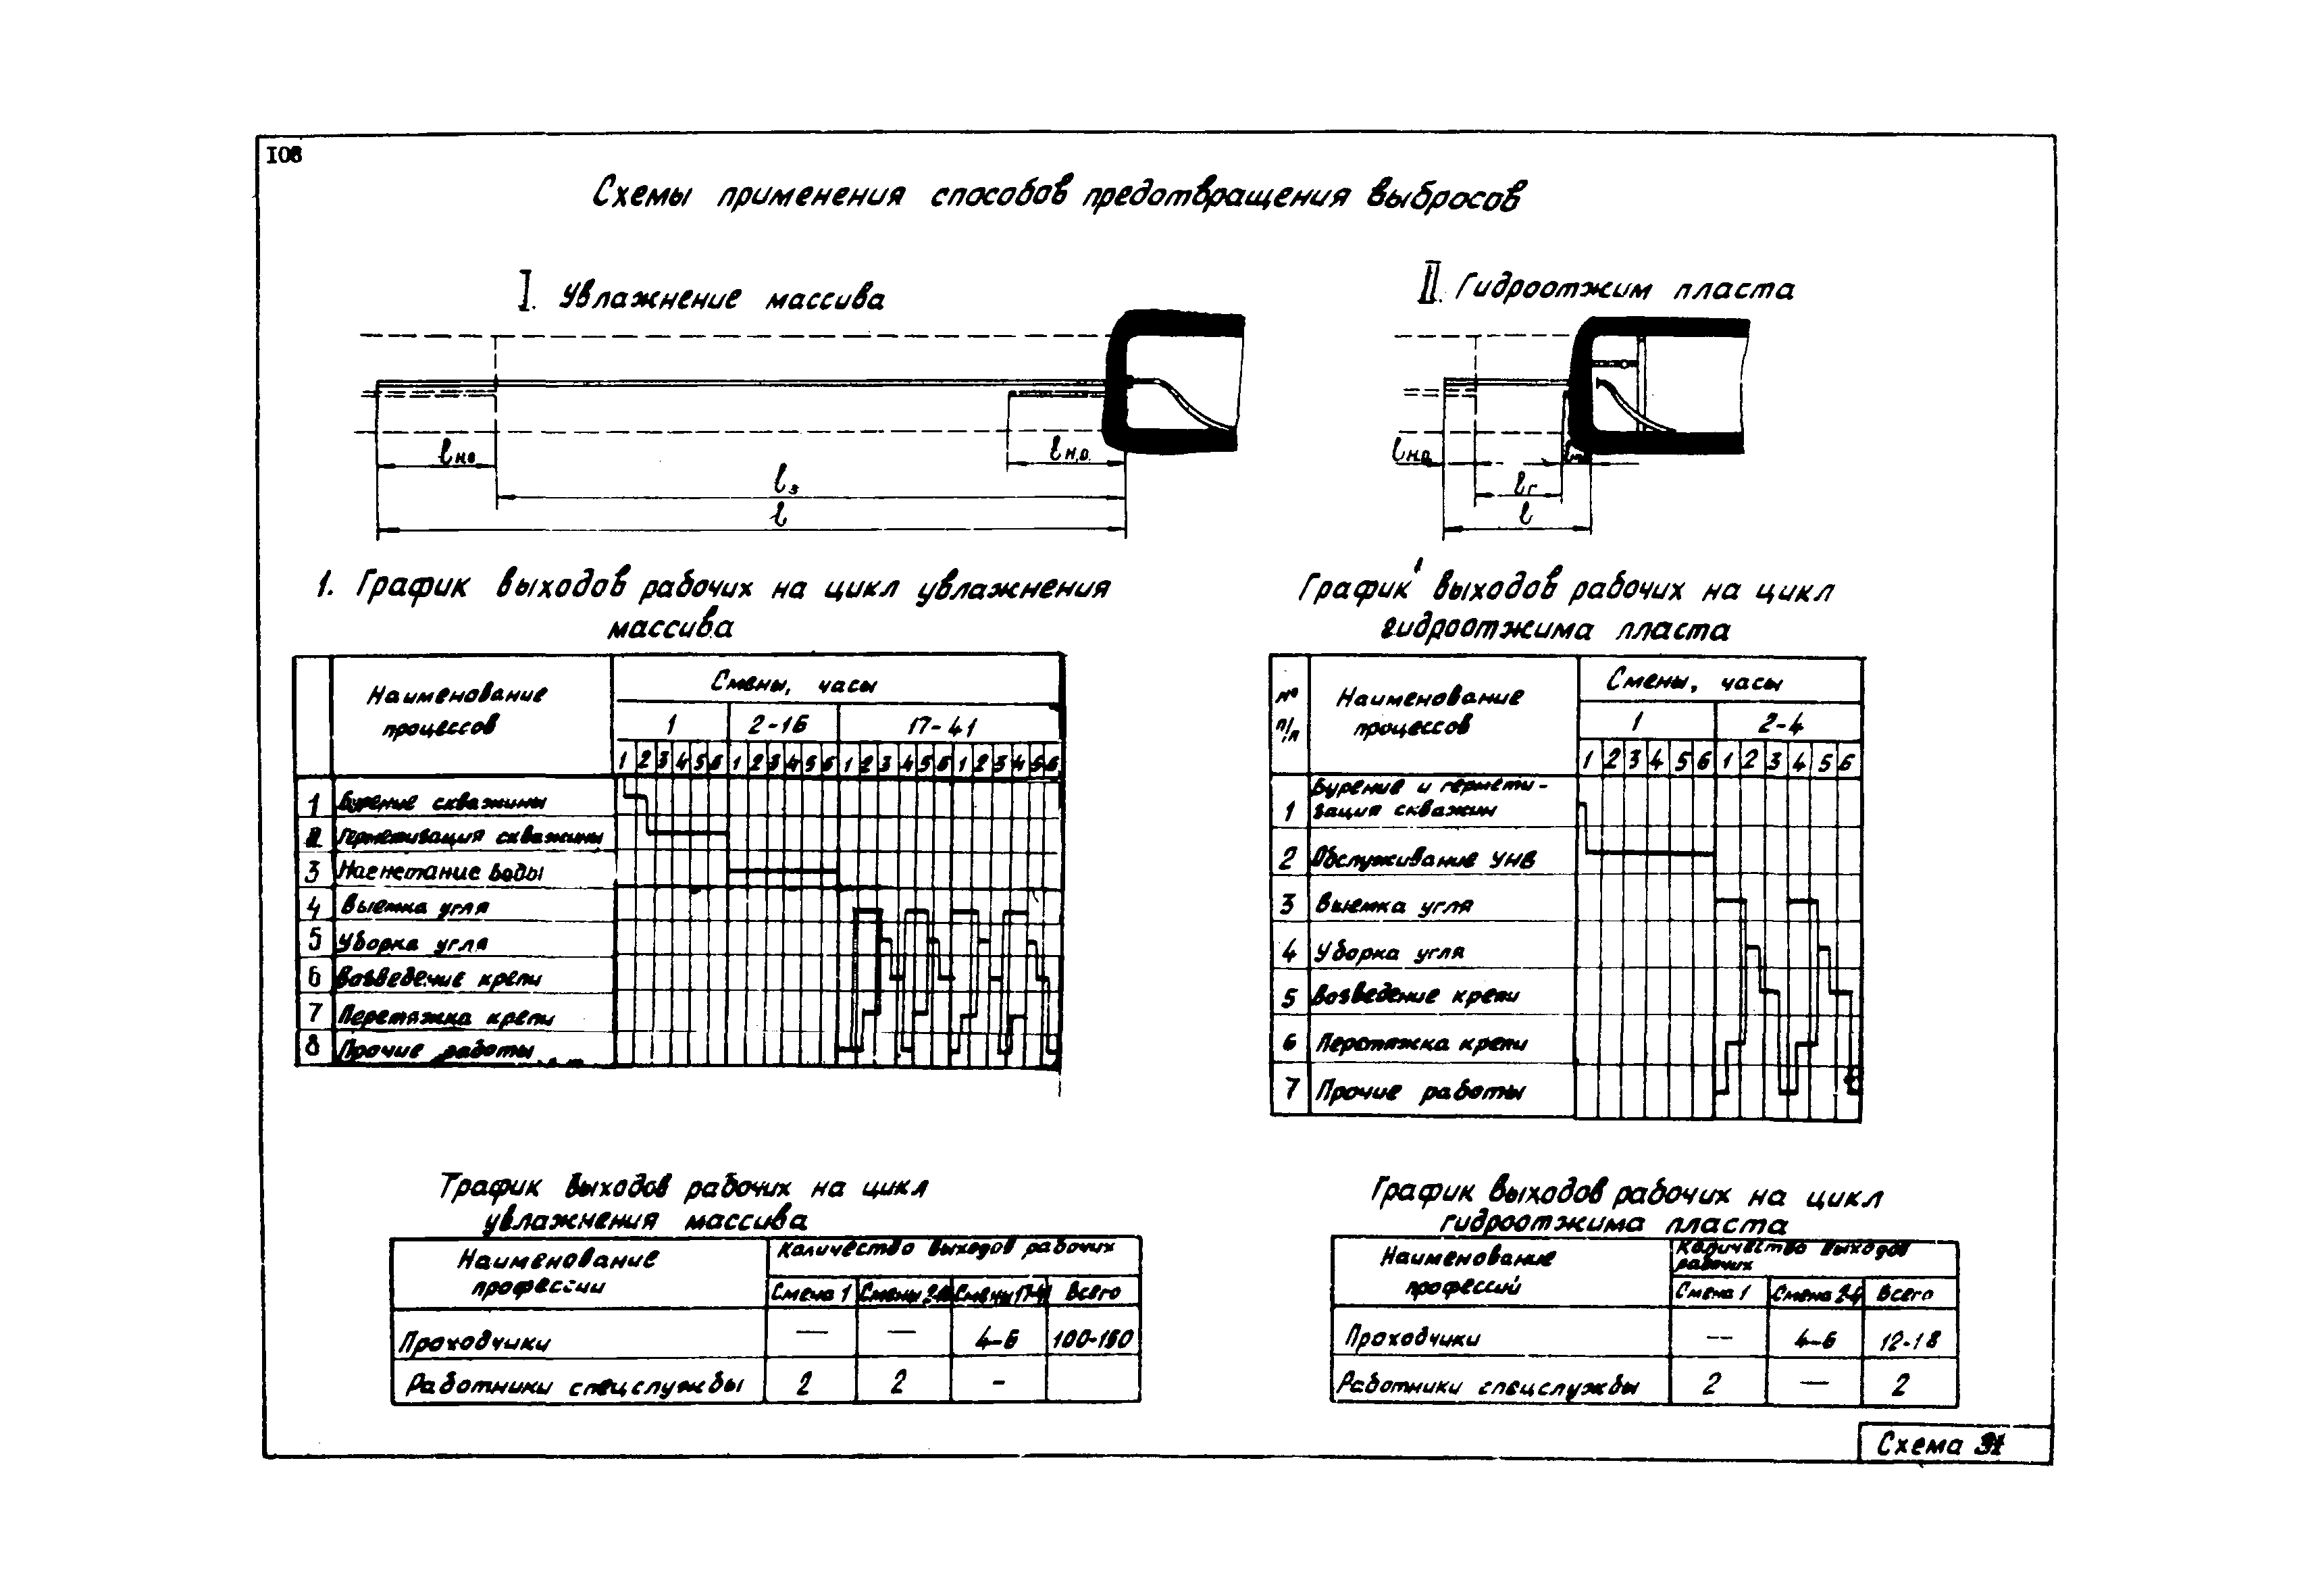 108
Схемы применения способов предотвращения выбросов
I. Увлажнение массива
II. Гидроотжим пласта
lн.о lн.о. lз l
lн.о. lг l
1. График выходов рабочих на цикл увлажнения
массива
Наименование процессов Смены, часы
1 2-16 17-41
1 2 3 4 5 6 1 2 3 4 5 6 1 2 3 4 5 6 1 2 3 4 5 6
1 Бурение скважины
2 Герметизация скважины
3 Нагнетание воды
4 Выемка угля
5 Уборка угля
6 Возведение крепи
7 Перетяжка крепи
8 Прочие работы
График выходов рабочих на цикл
гидроотжима пласта
№ п/п Наименование процессов Смены, часы
1 2-4
1 2 3 4 5 6 1 2 3 4 5 6
1 Бурение и гермети-
зация скважин
2 Обслуживание УНВ
3 Выемка угля
4 Уборка угля
5 Возведение крепи
6 Перетяжка крепи
7 Прочие работы
График выходов рабочих на цикл
увлажнения массива
Наименование профессии Количество выходов рабочих
Смена 1 Смены 2-16 Смены 17-41 Всего
Проходчики — — 4-6 100-150
Работники спецслужбы 2 2 -
График выходов рабочих на цикл
гидроотжима пласта
Наименование профессий Количество выходов
рабочих
Смена 1 Смена 2-4 Всего
Проходчики — 4-6 12-18
Работники спецслужбы 2 — 2
Схема 31